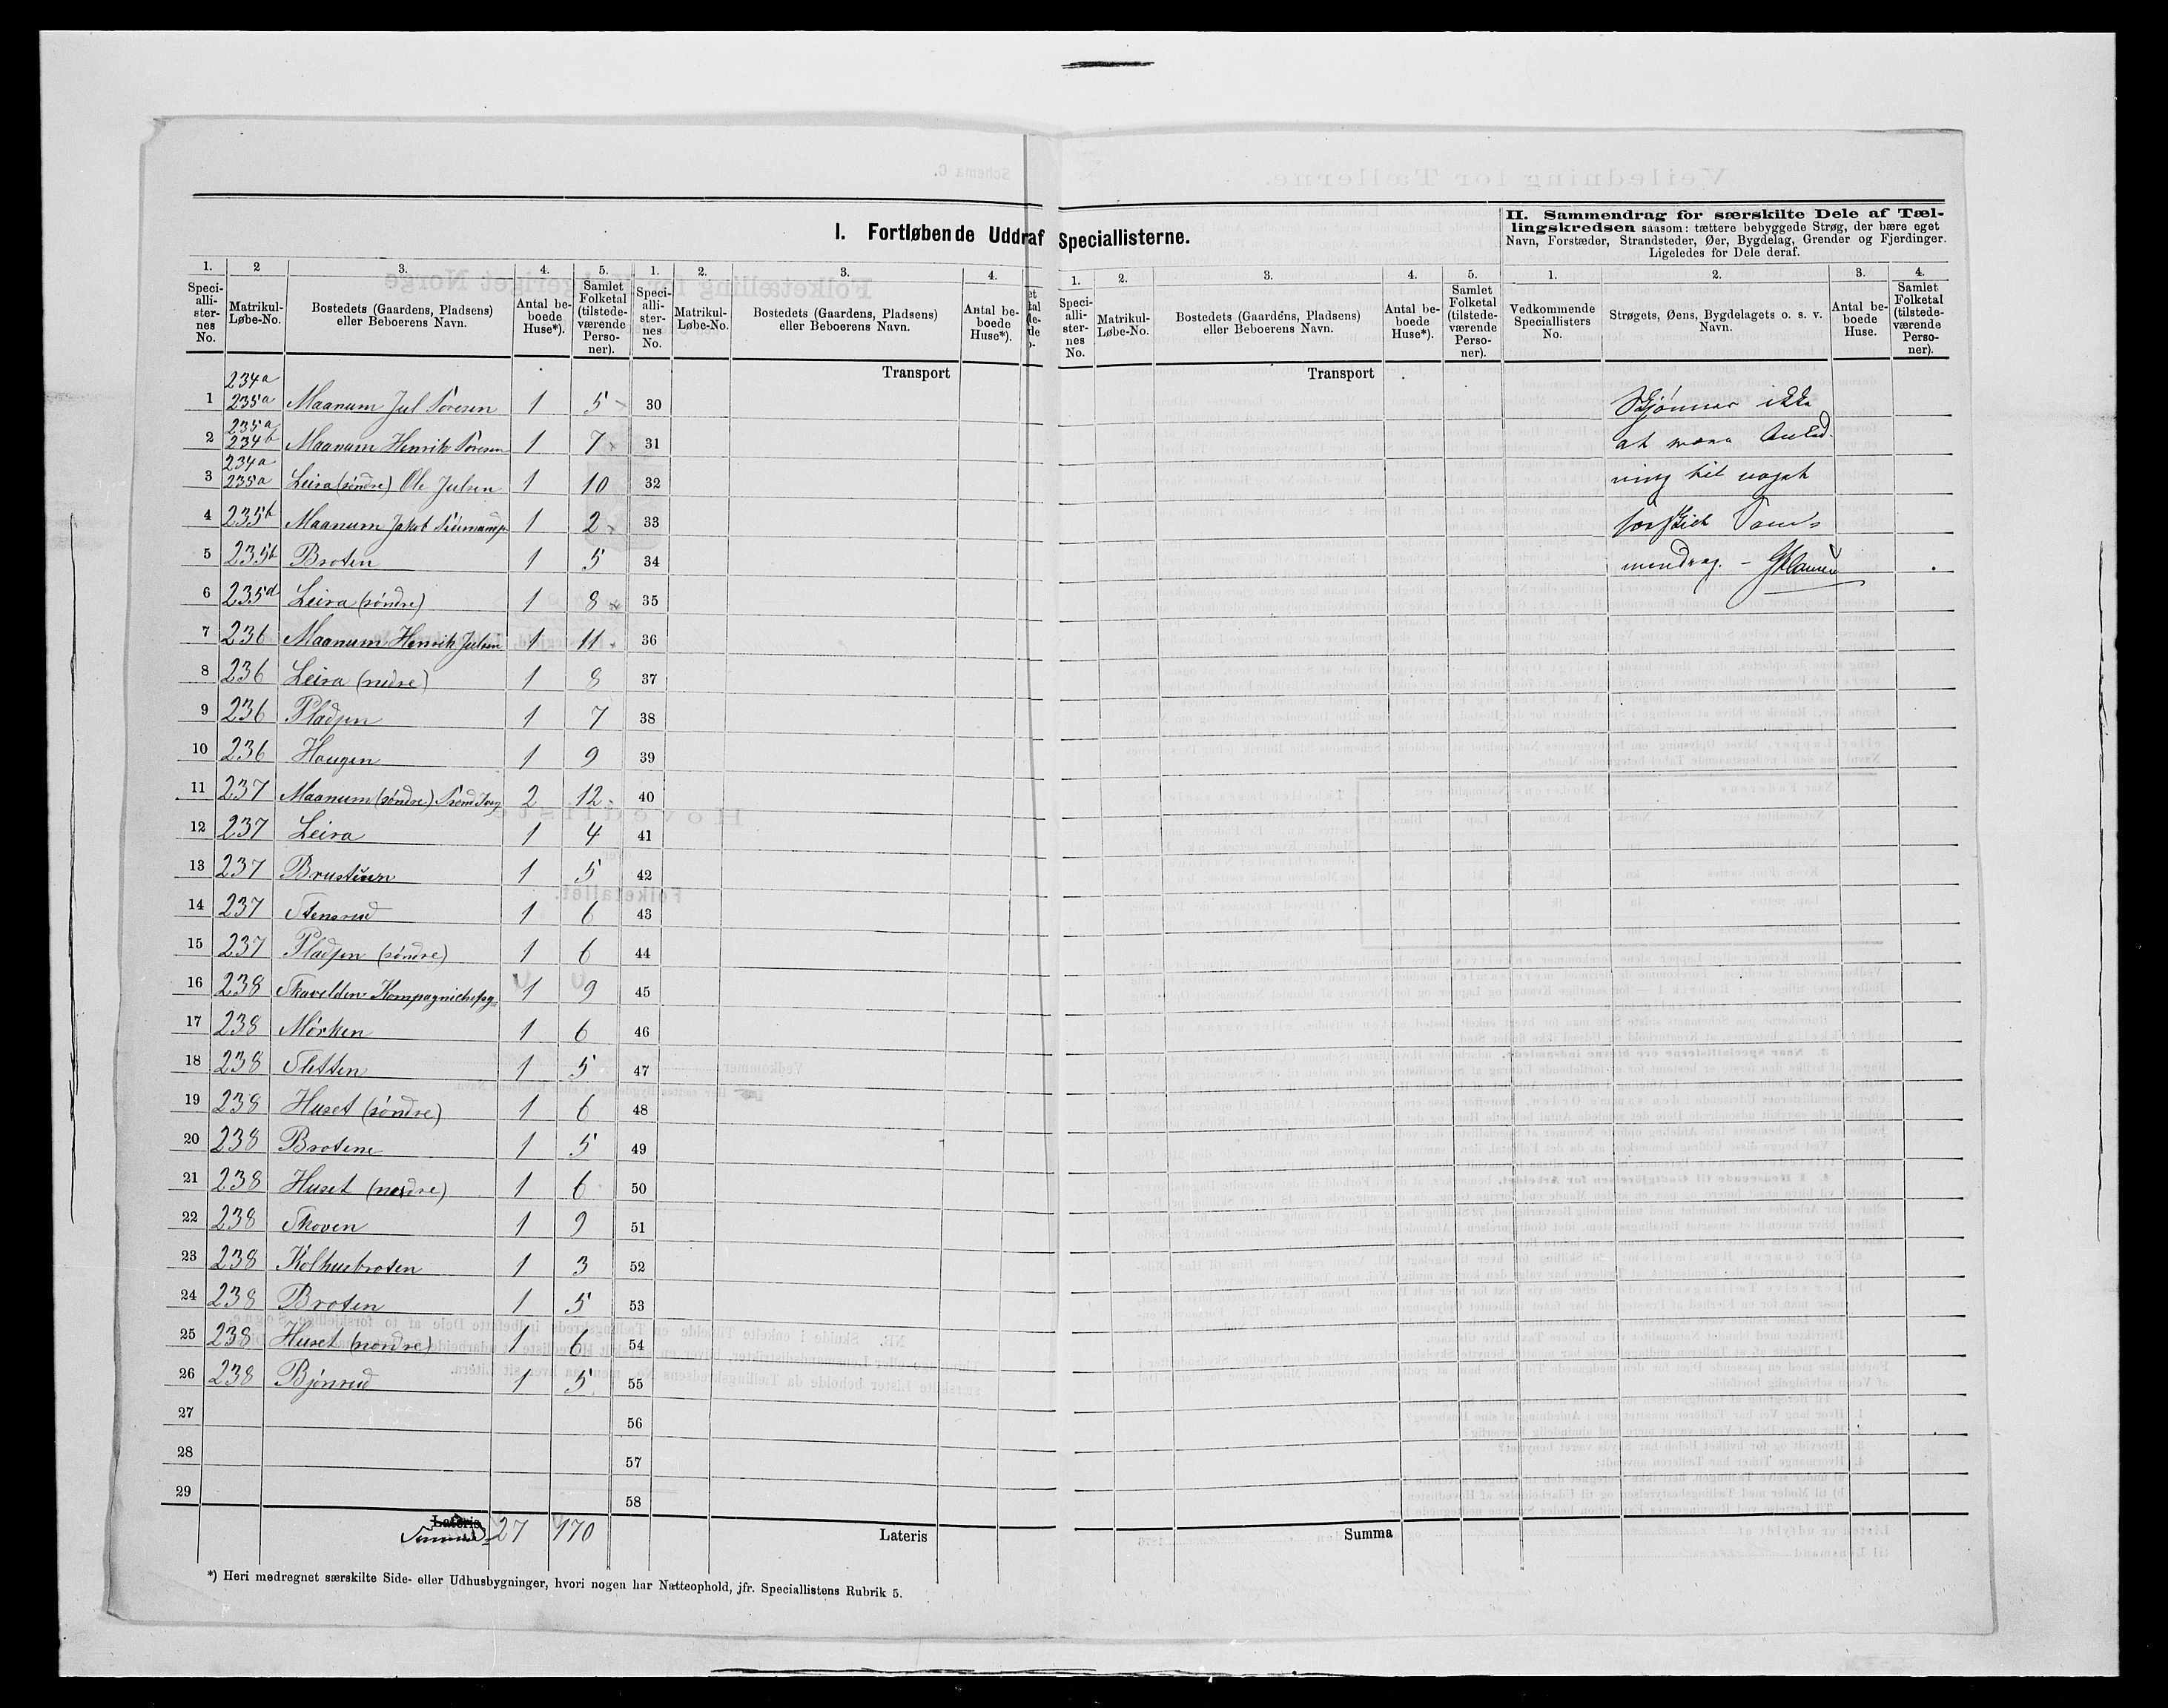 I. Fortløbende Uddraf Speciallisterne.
II. Sammendrag for særskilte Dele af Tæl-
lingskredsen saasom: tættere bebyggede Strøg, der bære eget
Navn, Forstæder, Strandsteder, Øer, Bygdelag, Grender og Fjerdinger.
Ligeledes for Dele deraf.
1. 2 3. 4. 5. 1. 2. 3. 4. 1. 2. 3. 4. 5. 1. 2. 3. 4.
Speciallisternes No. Matrikul-Løbe-No. Bostedets (Gaardens, Pladsens) eller Beboerens Navn. Antal beboede Huse*). Samlet Folketal (tilstedeværende Personer).
Speciallisternes No. Matrikul-Løbe-No. Bostedets (Gaardens, Pladsens) eller Beboerens Navn. Antal beboede Huse*).
Speciallisternes No. Matrikul-Løbe-No. Bostedets (Gaardens, Pladsens) eller Beboerens Navn. Antal beboede Huse*). Samlet Folketal (tilstedeværende Personer).
Vedkommende Speciallisters No. Strøgets, Øens, Bygdelagets o. s. v. Navn. Antal beboede Huse. Samlet Folketal (tilstedeværende Personer).
Transport Transport
1 234a 235a Maanum Jul Søresen 1 5 30
2 235a 234b Maanum Henrik 1 7 31
3 234a 235a Leira (søndre) Ole Julsen 1 10 32
4 235b Maanum Jakob 1 2 33
5 235b Broten 1 5 34
6 235d Leira (søndre) 1 8 35
7 236 Maanum Henrik Julsen 1 11 36
8 236 Leira (nedre) 1 8 37
9 236 Pladsen 1 7 38
10 236 Haugen 1 9 39
11 237 Maanum (søndre) 2 12 40
12 237 Leira 1 4 41
13 237 1 5 42
14 237 Stensrud 1 6 43
15 237 Pladsen (søndre) 1 6 44
16 238 Skavelden Kompagnichefsg. 1 9 45
17 238 Mørken 1 6 46
18 238 Sletten 1 5 47
19 238 Huset (søndre) 1 6 48
20 238 Brotene 1 5 49
21 238 Huset (nordre) 1 6 50
22 238 Skoven 1 9 51
23 238 Kolhusbroten 1 3 52
24 238 Broten 1 5 53
25 238 Huset (nordre) 1 6 54
26 238 Bjønrud 1 5 55
27 56
28 57
29 58
Lateris 27 170 Lateris Summa
Skjønner ikke
at være Anled-
ning til noget
særskilt Sam-
mendrag. -
*) Heri medregnet særskilte Side- eller Udhusbygninger, hvori nogen har Natteophold, jfr. Speciallistens Rubrik 5.